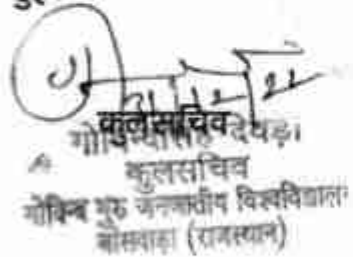 कुलसचिव
गोविन्दसिंह देवड़ा
कुलसचिव
गोविन्द गुरु जनजातीय विश्वविद्यालय
बांसवाड़ा (राजस्थान)